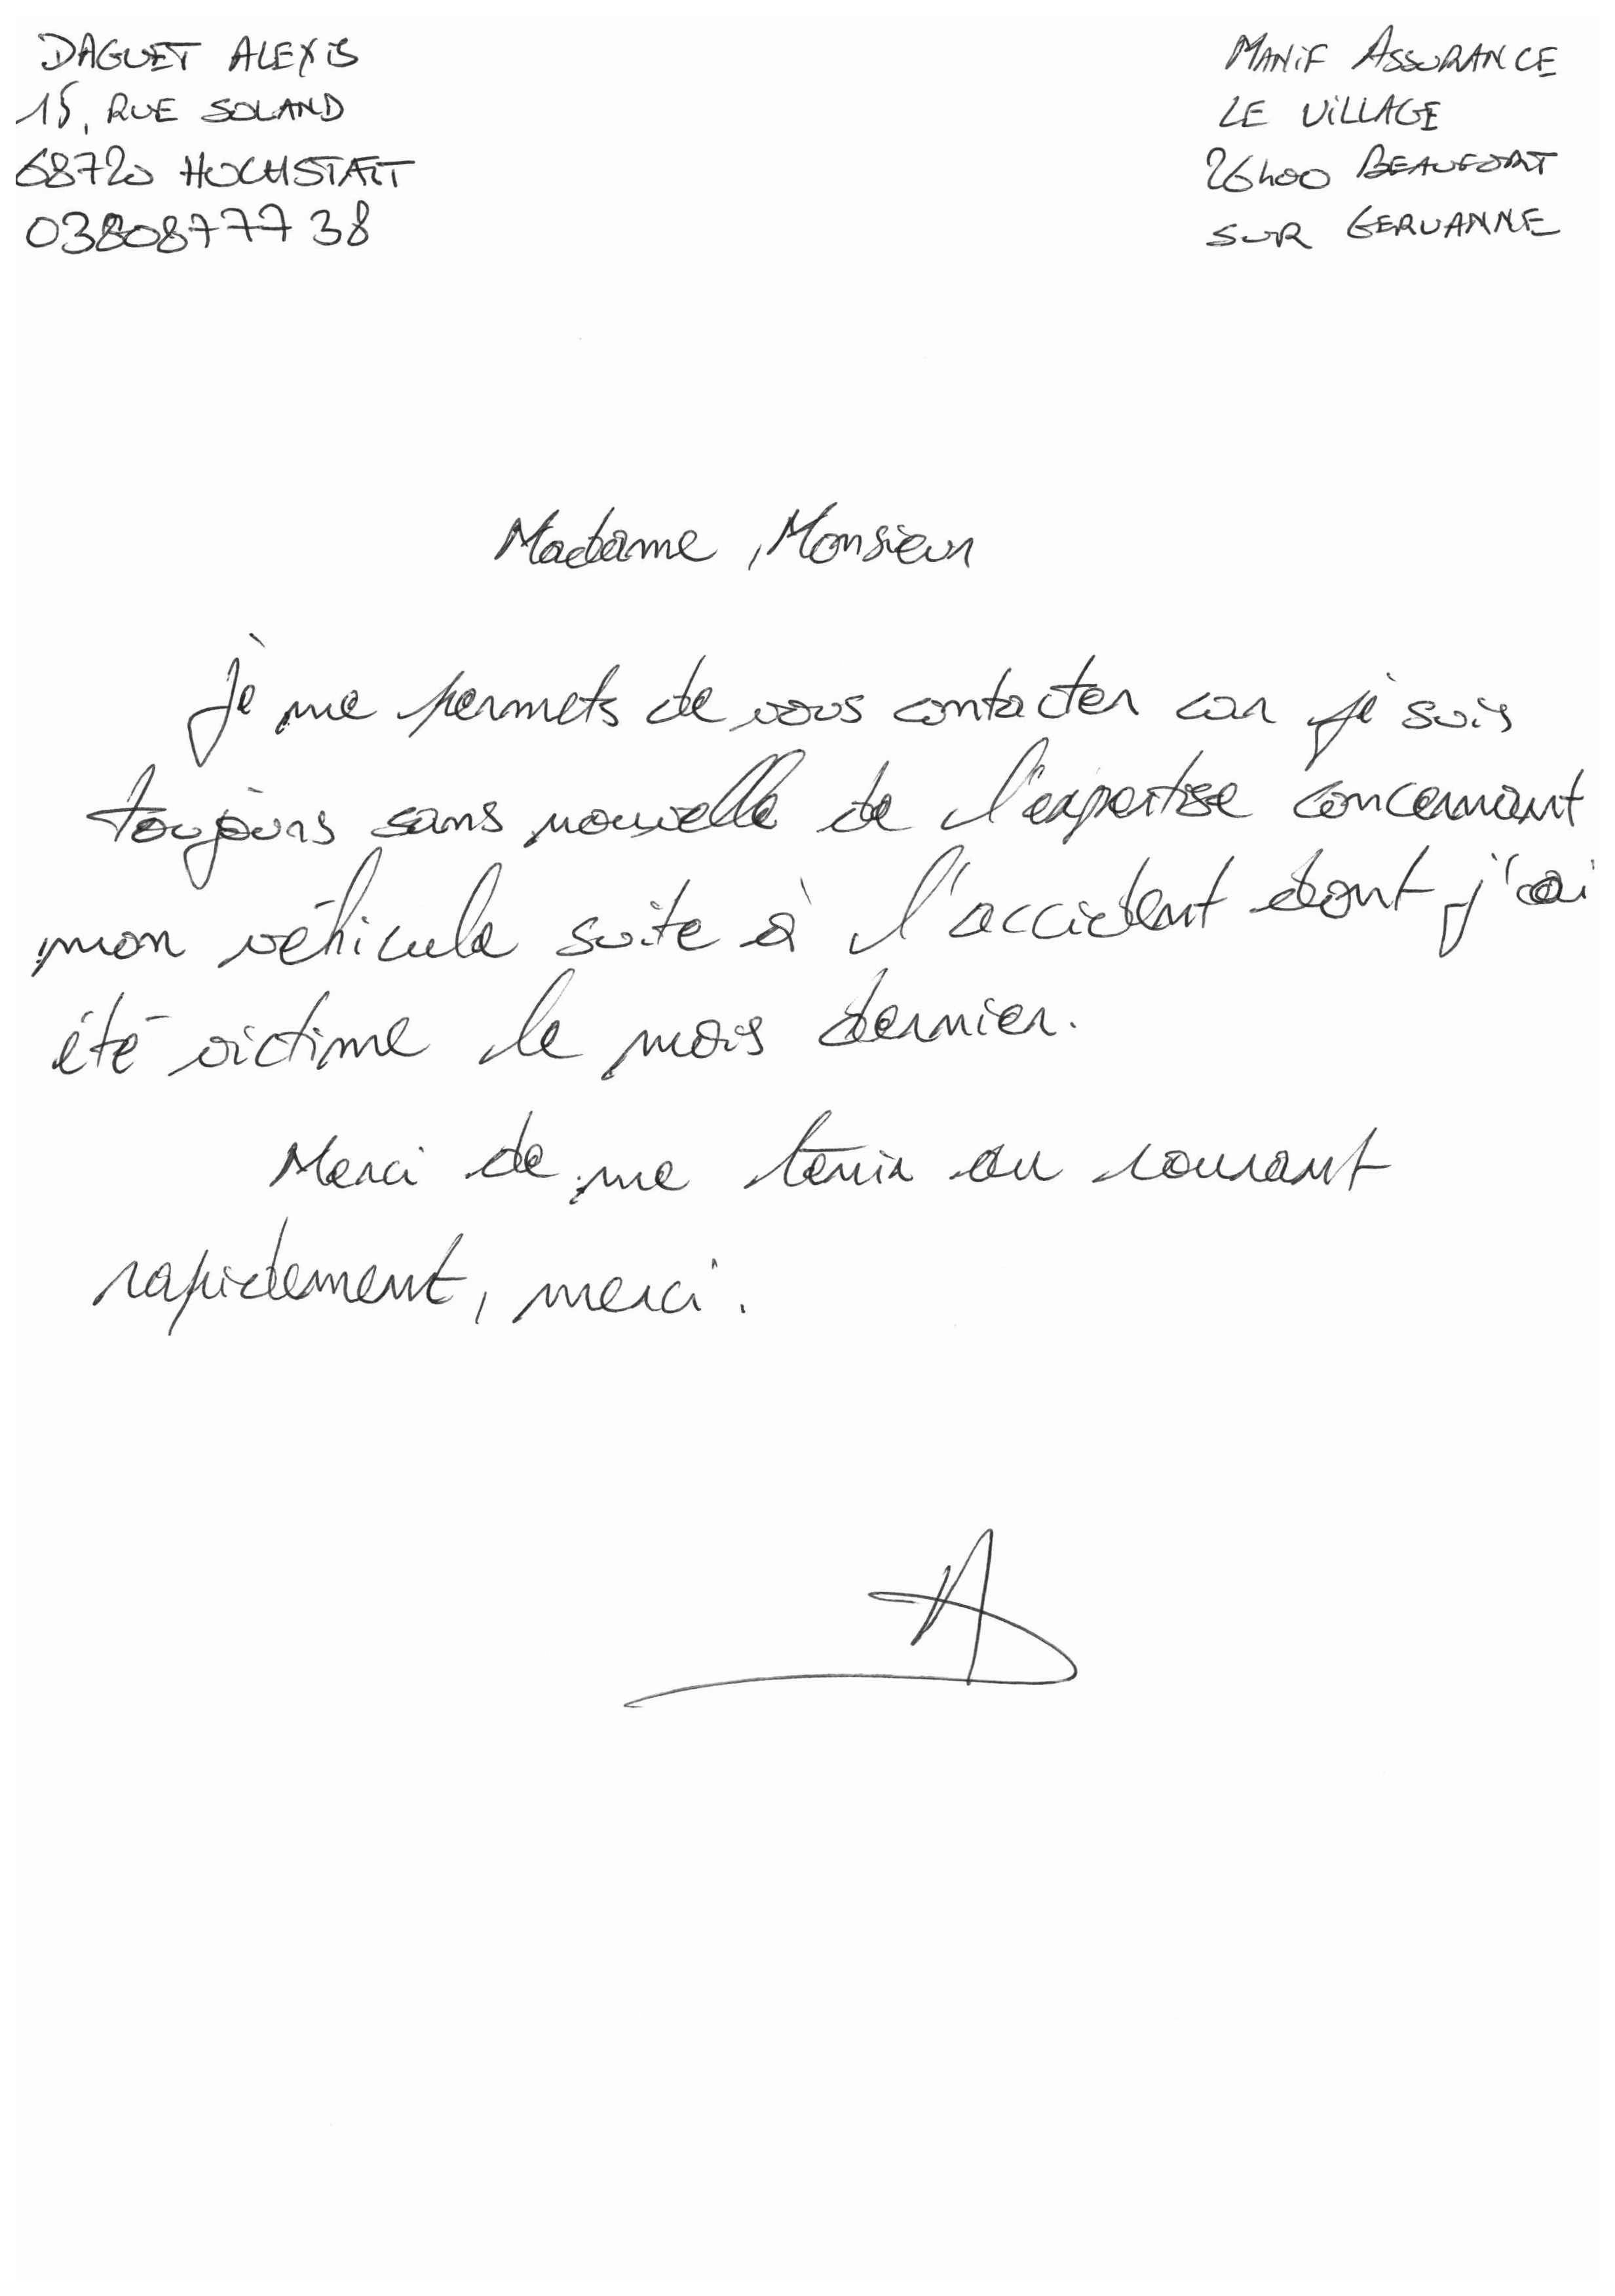 DAGUET ALEXIS
15, RUE SOLAND
68720 HOCHSTATT
0380877738
MANiF ASSURANCE
LE ViLLAGE
26400 BEAUFORT
SUR GERVANNE
Madame, Monsieur
Je me permets de vous contacter car je suis
toujours sans nouvelle de l'expertise concernant
mon véhicule suite à l'accident dont j'ai
été victime le mois dernier.
Merci de me tenir au courant
rapidement, merci.